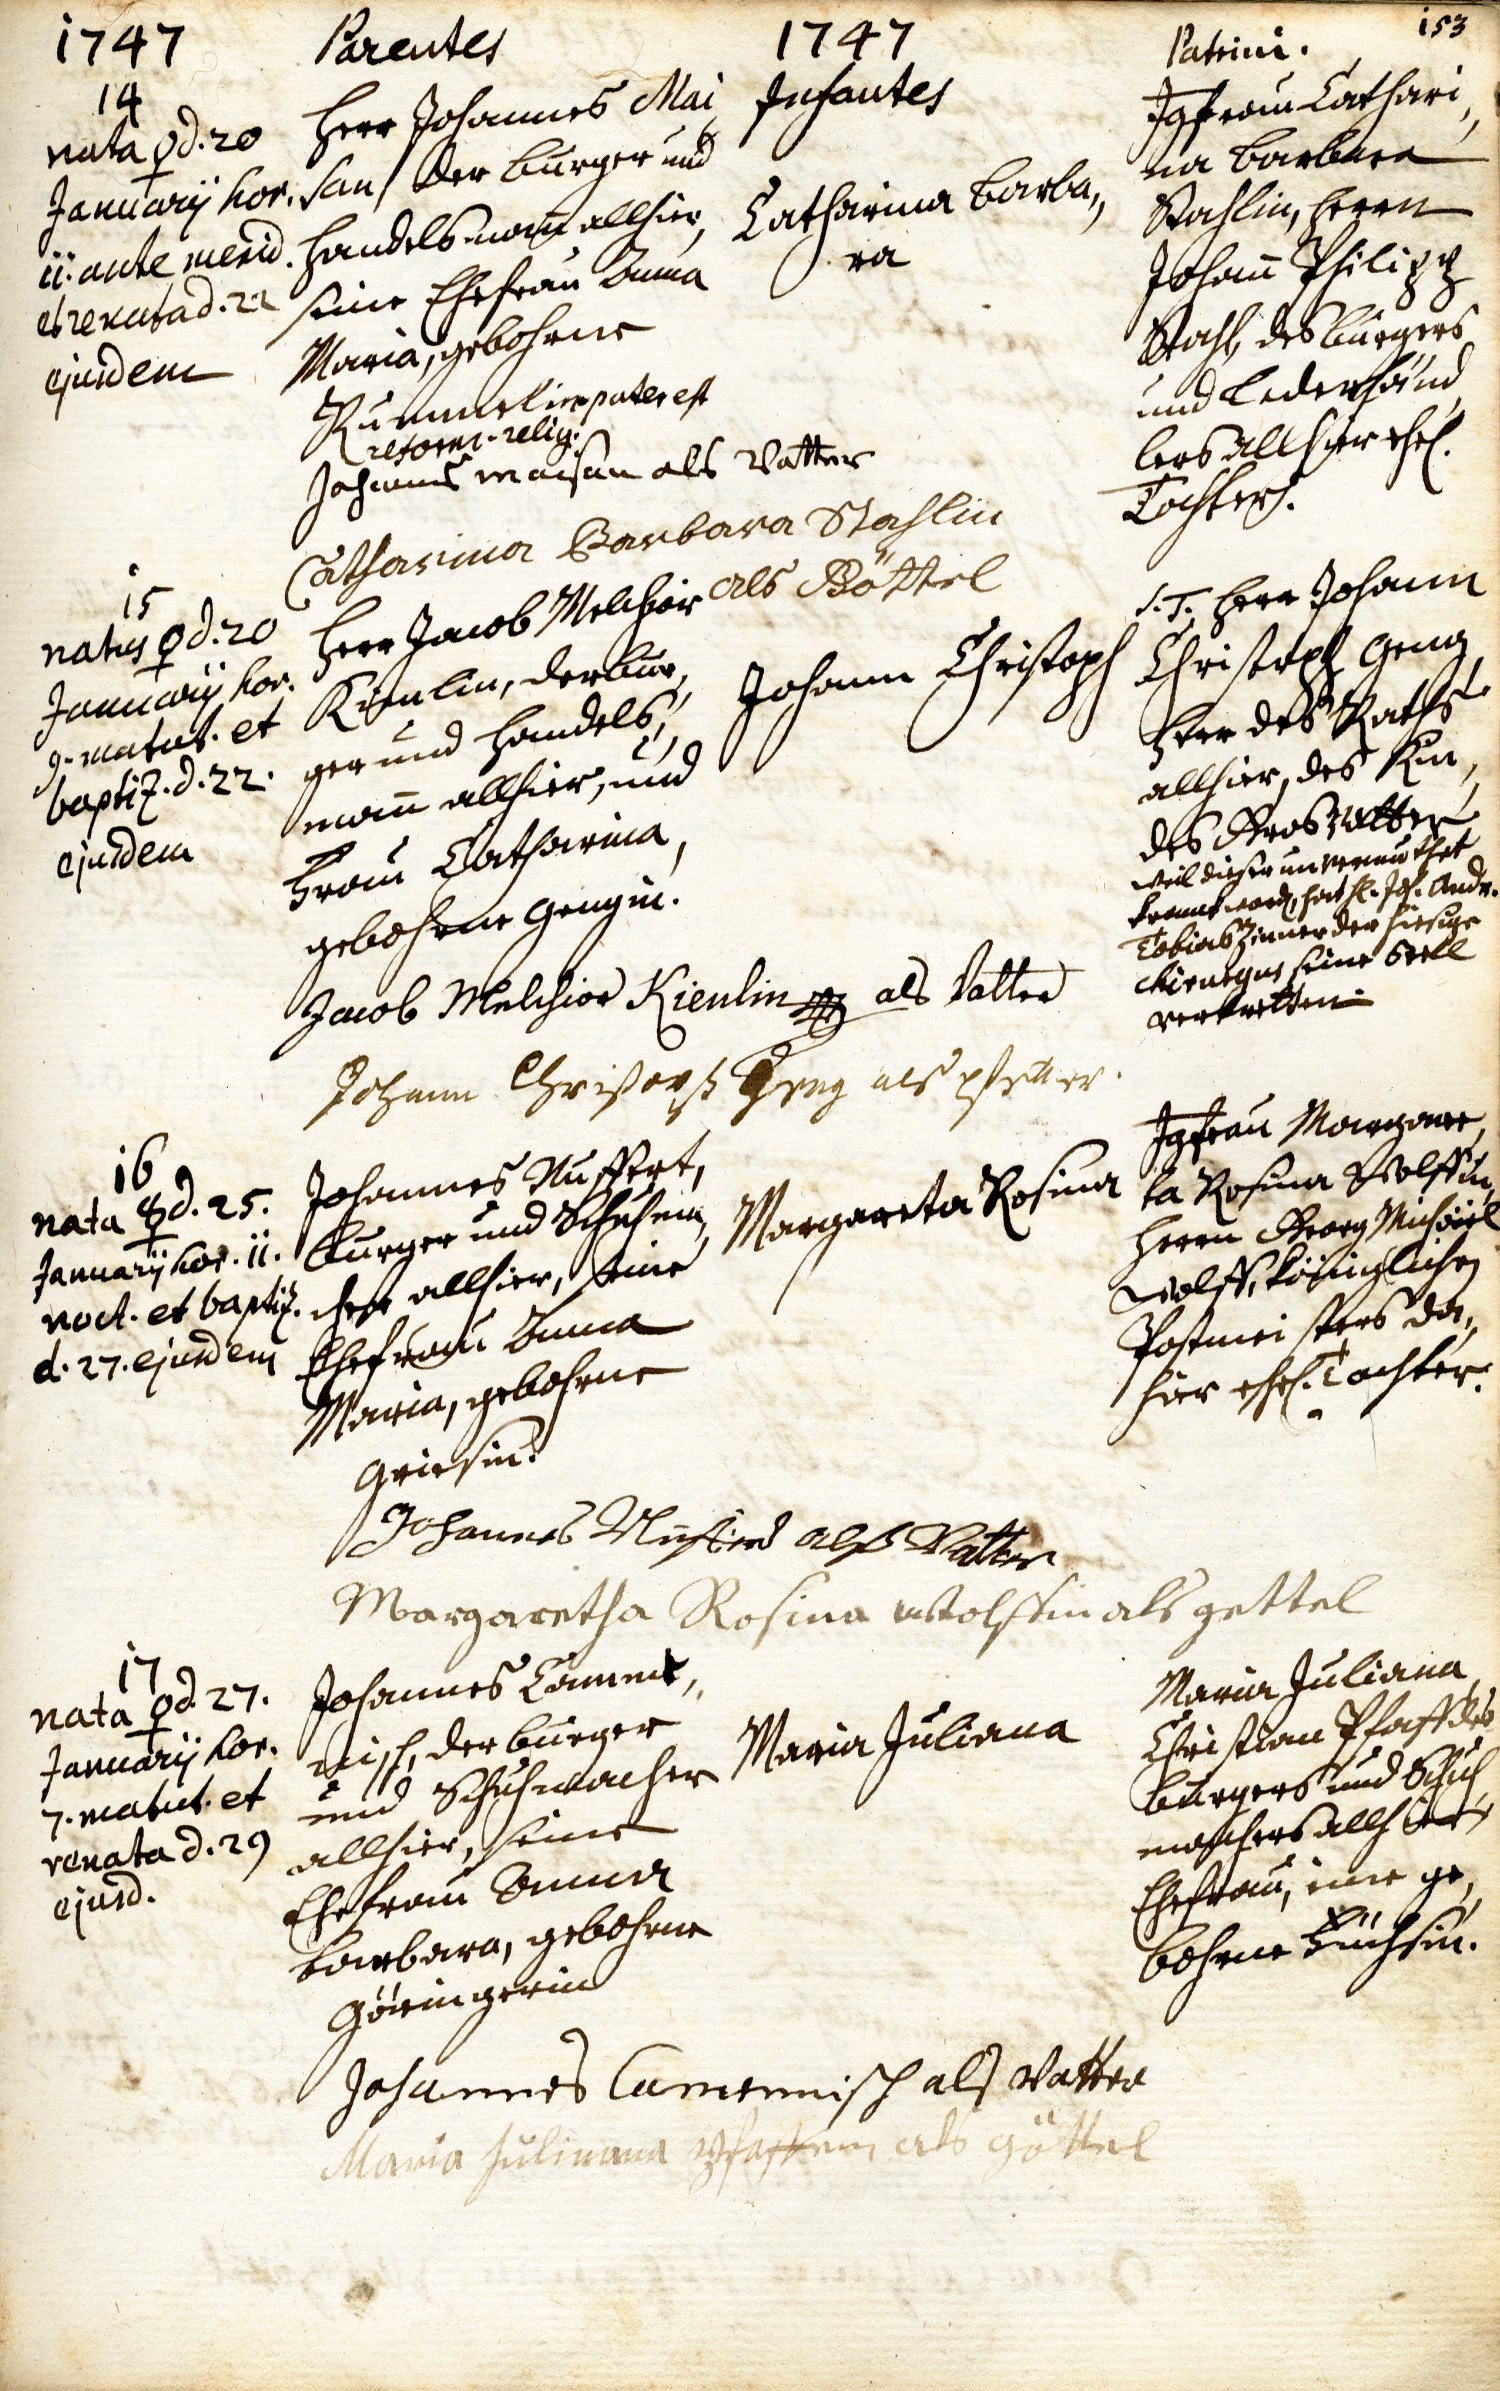 1747 Parentes 1747 Patrini. 153
Infantes
14
nata ♀ d. 20
Januarij hor.
11. ante merid.
et renata d. 22
ejusdem
Herr Johannes Mai,
san, der burger und
handelsmañ allhier,
seine Ehefrau Anna
Maria, gebohrne
Rummelin pater est
reform. relig.
Catharina Barba,,
ra
Jgfrau Cathari,,
na Barbara
Stahlin, Herrn
Johañ Philipp
Stahl, des burgers
und Lederhänd,
lers allhier ehel.
Tochter.
Johannes Maisan als Vatter
Catharina Barbara Stahlin
als Göttel
15
natus ♀ d. 20
Januarij hor.
9. matut. et
baptiz. d. 22.
ejusdem
Herr Jacob Melchior
Kienlin, der bur,
ger und Handels,,
mañ allhier, und
Frau Catharina,
gebohrne Gengin.
Johann Christoph
S. T. Herr Johann
Christoph Geng
Herr des Raths
allhier, des Kin,
des Grosvatter
weil dieser unvermuthet
krank word, hat H. Joh. Andr.
Tobias Zinner der hiesige
Chirurgus seine Stell
vertretten.
Jacob Melchior Kienlin als Vatter
Johann Christoph Geng als pfetter.
16
nata ☿ d. 25.
Januarij hor. 11.
noct. et baptiz.
d. 27. ejusdem
Johannes Nuffert,
burger und Schuhma,
cher allhier, seine
Ehefrau Anna
Maria, gebohrne
Griesin.
Margareta Rosina
Jgfrau Margare,
ta Rosina Wolffin,
Herrn Georg Michael
Wolff, königlichen
Postmeisters da,,
hier ehel. Tochter.
Johannes Nuffert als Vatter
Margaretha Rosina Wolffin als gettel
17
nata ♀ d. 27.
Januarij hor.
7. matut. et
renata d. 29
ejusd.
Johannes Camme,,
nisch, der burger
und Schuhmacher
allhier, seine
Ehefrau Anna
Barbara, gebohrne
Göringerin
Maria Juliana
Maria Juliana
Christian Pfaff des
burgers und Schuh
machers allhier
Ehefrau, eine ge,
bohrne Füchsin.
Johannes Camennisch als Vatter
Maria Juliana Pfaffein als göttel